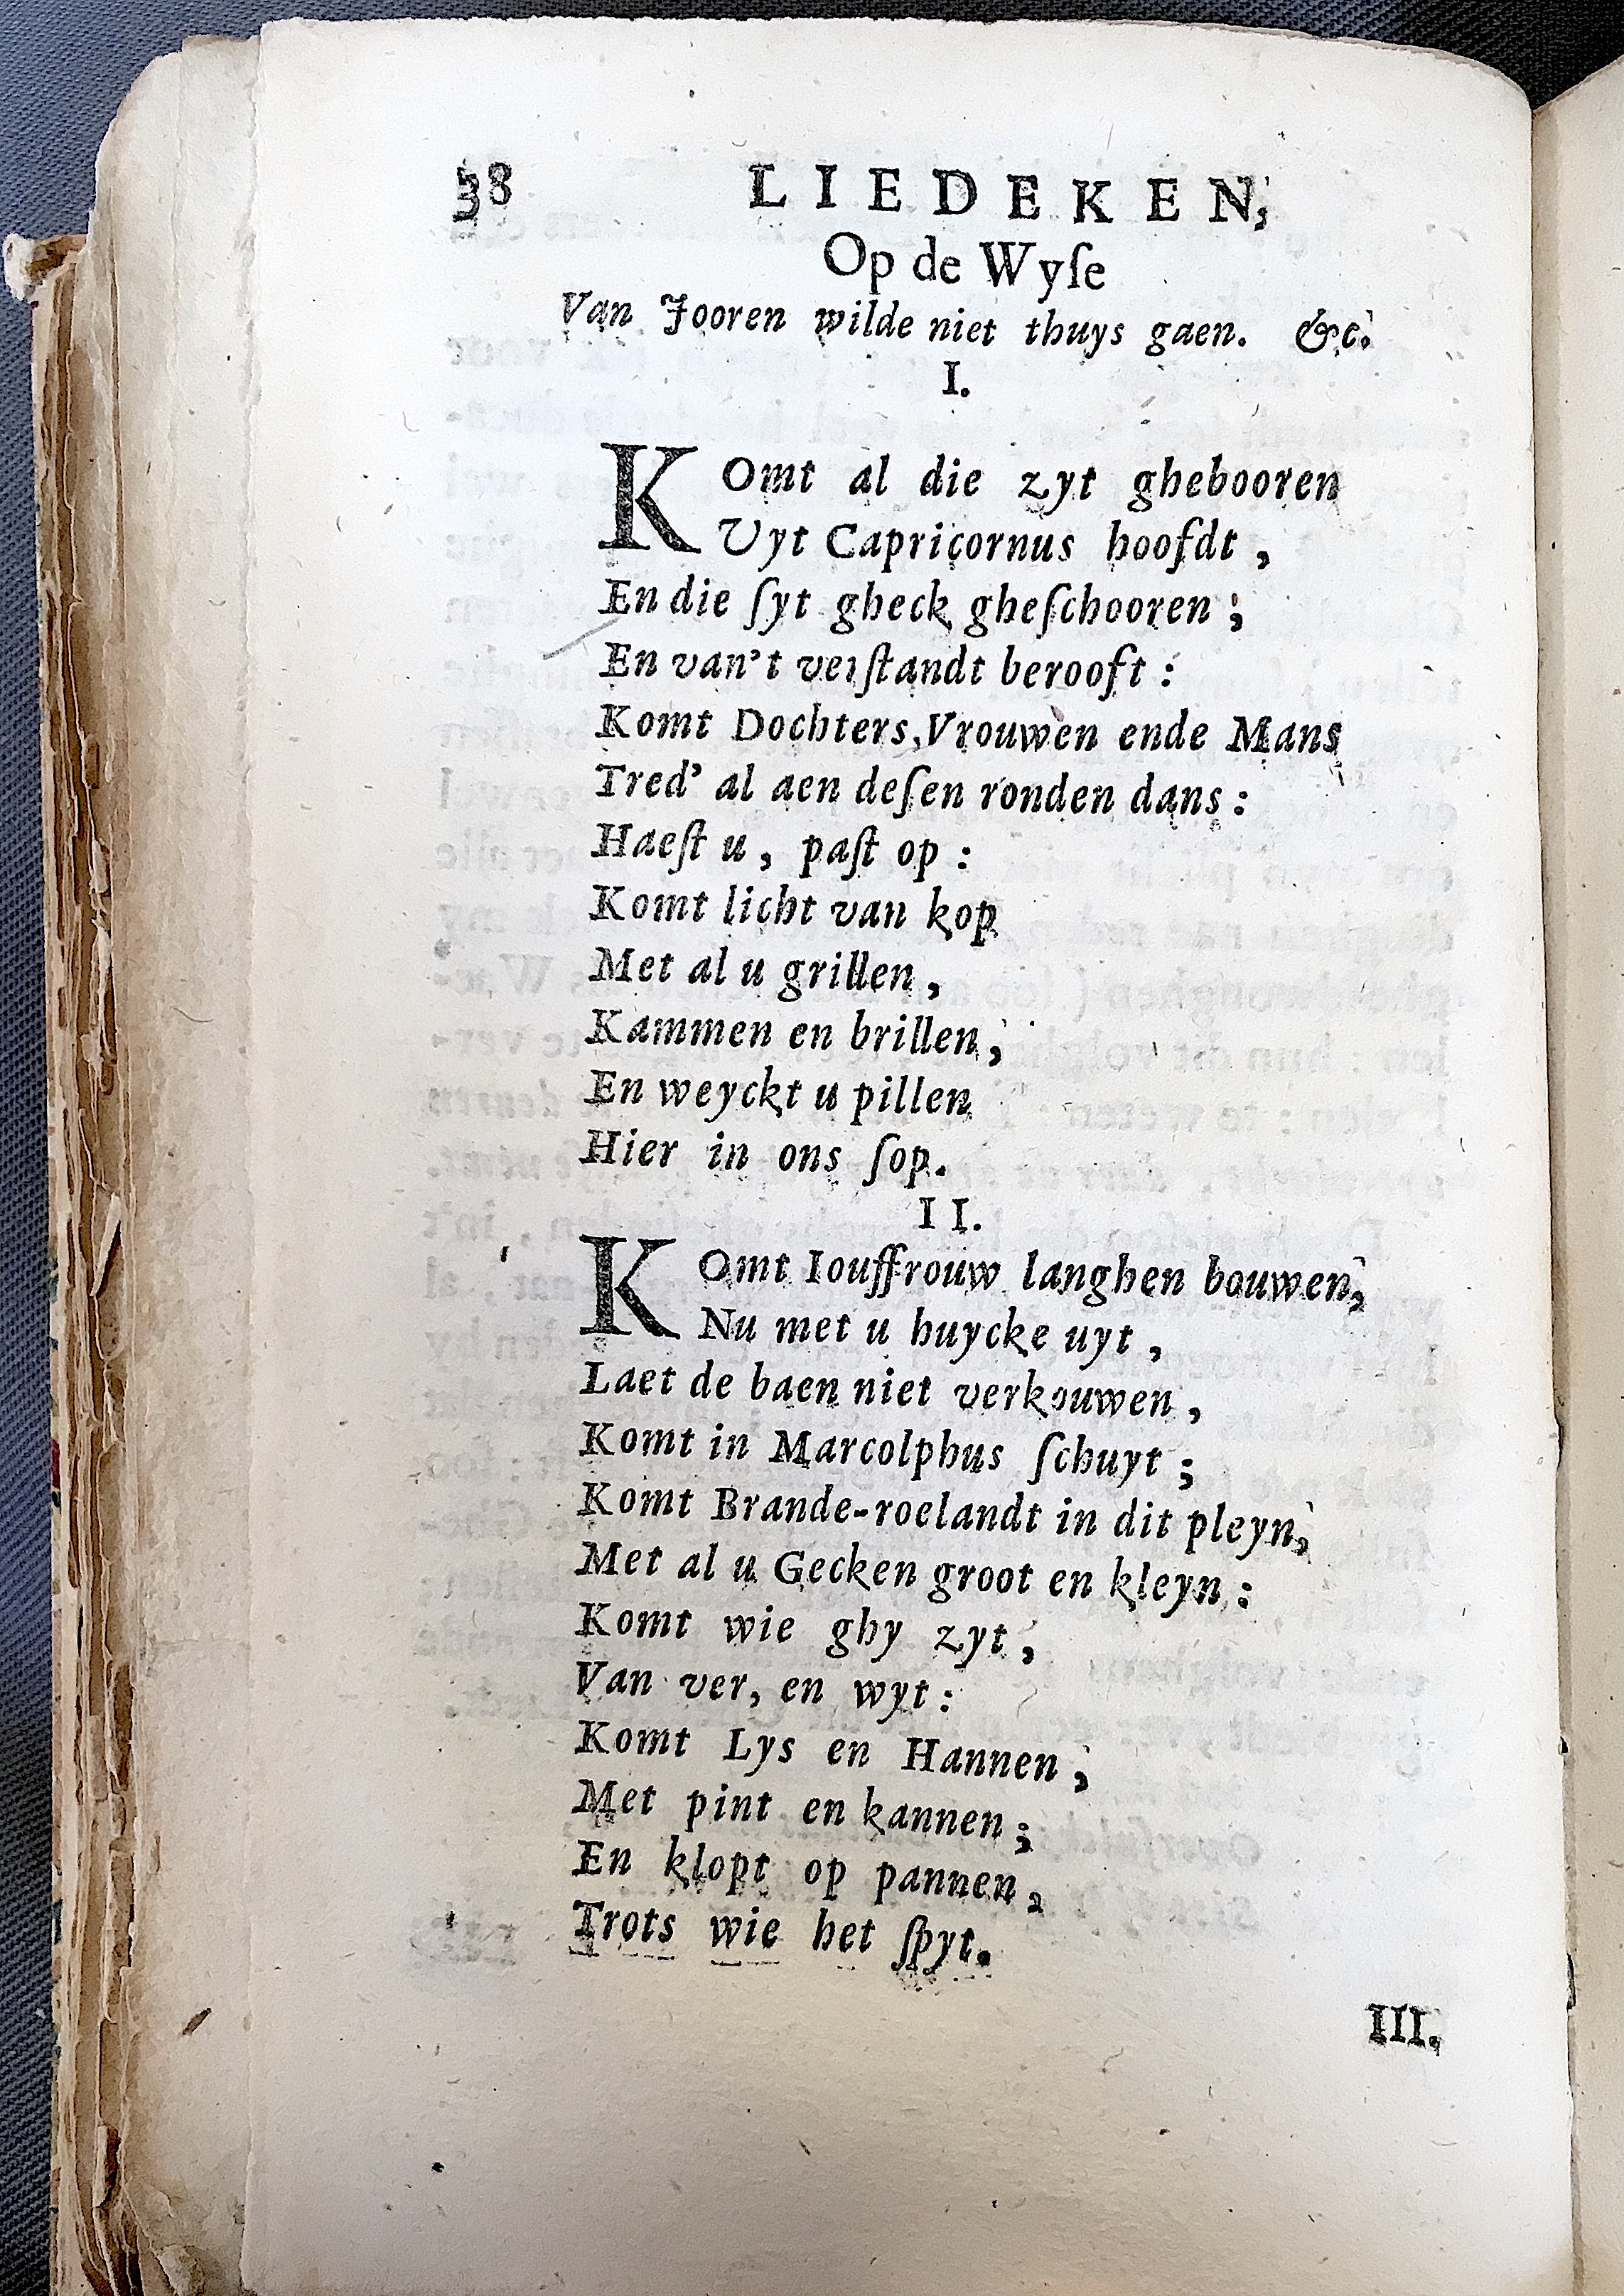 38 LIEDEKEN,
Op de Wyſe
Van Jooren wilde niet thuys gaen. &c.
I.
KOmt al die zyt ghebooren
Uyt Capricornus hoofdt,
En die ſyt gheck gheſchooren;
En van't verſtandt berooft:
Komt Dochters, Vrouwen ende Mans
Tred' al aen deſen ronden dans:
Haeſt u, paſt op:
Komt licht van kop
Met al u grillen,
Kammen en brillen,
En weyckt u pillen
Hier in ons ſop.
II.
KOmt Iouffrouw langhen bouwen,
Nu met u huycke uyt,
Laet de baen niet verkouwen,
Komt in Marcolphus ſchuyt;
Komt Brande-roelandt in dit pleyn,
Met al u Gecken groot en kleyn:
Komt wie ghy zyt,
Van ver, en wyt:
Komt Lys en Hannen,
Met pint en kannen;
En klopt op pannen,
Trots wie het ſpyt.
III.